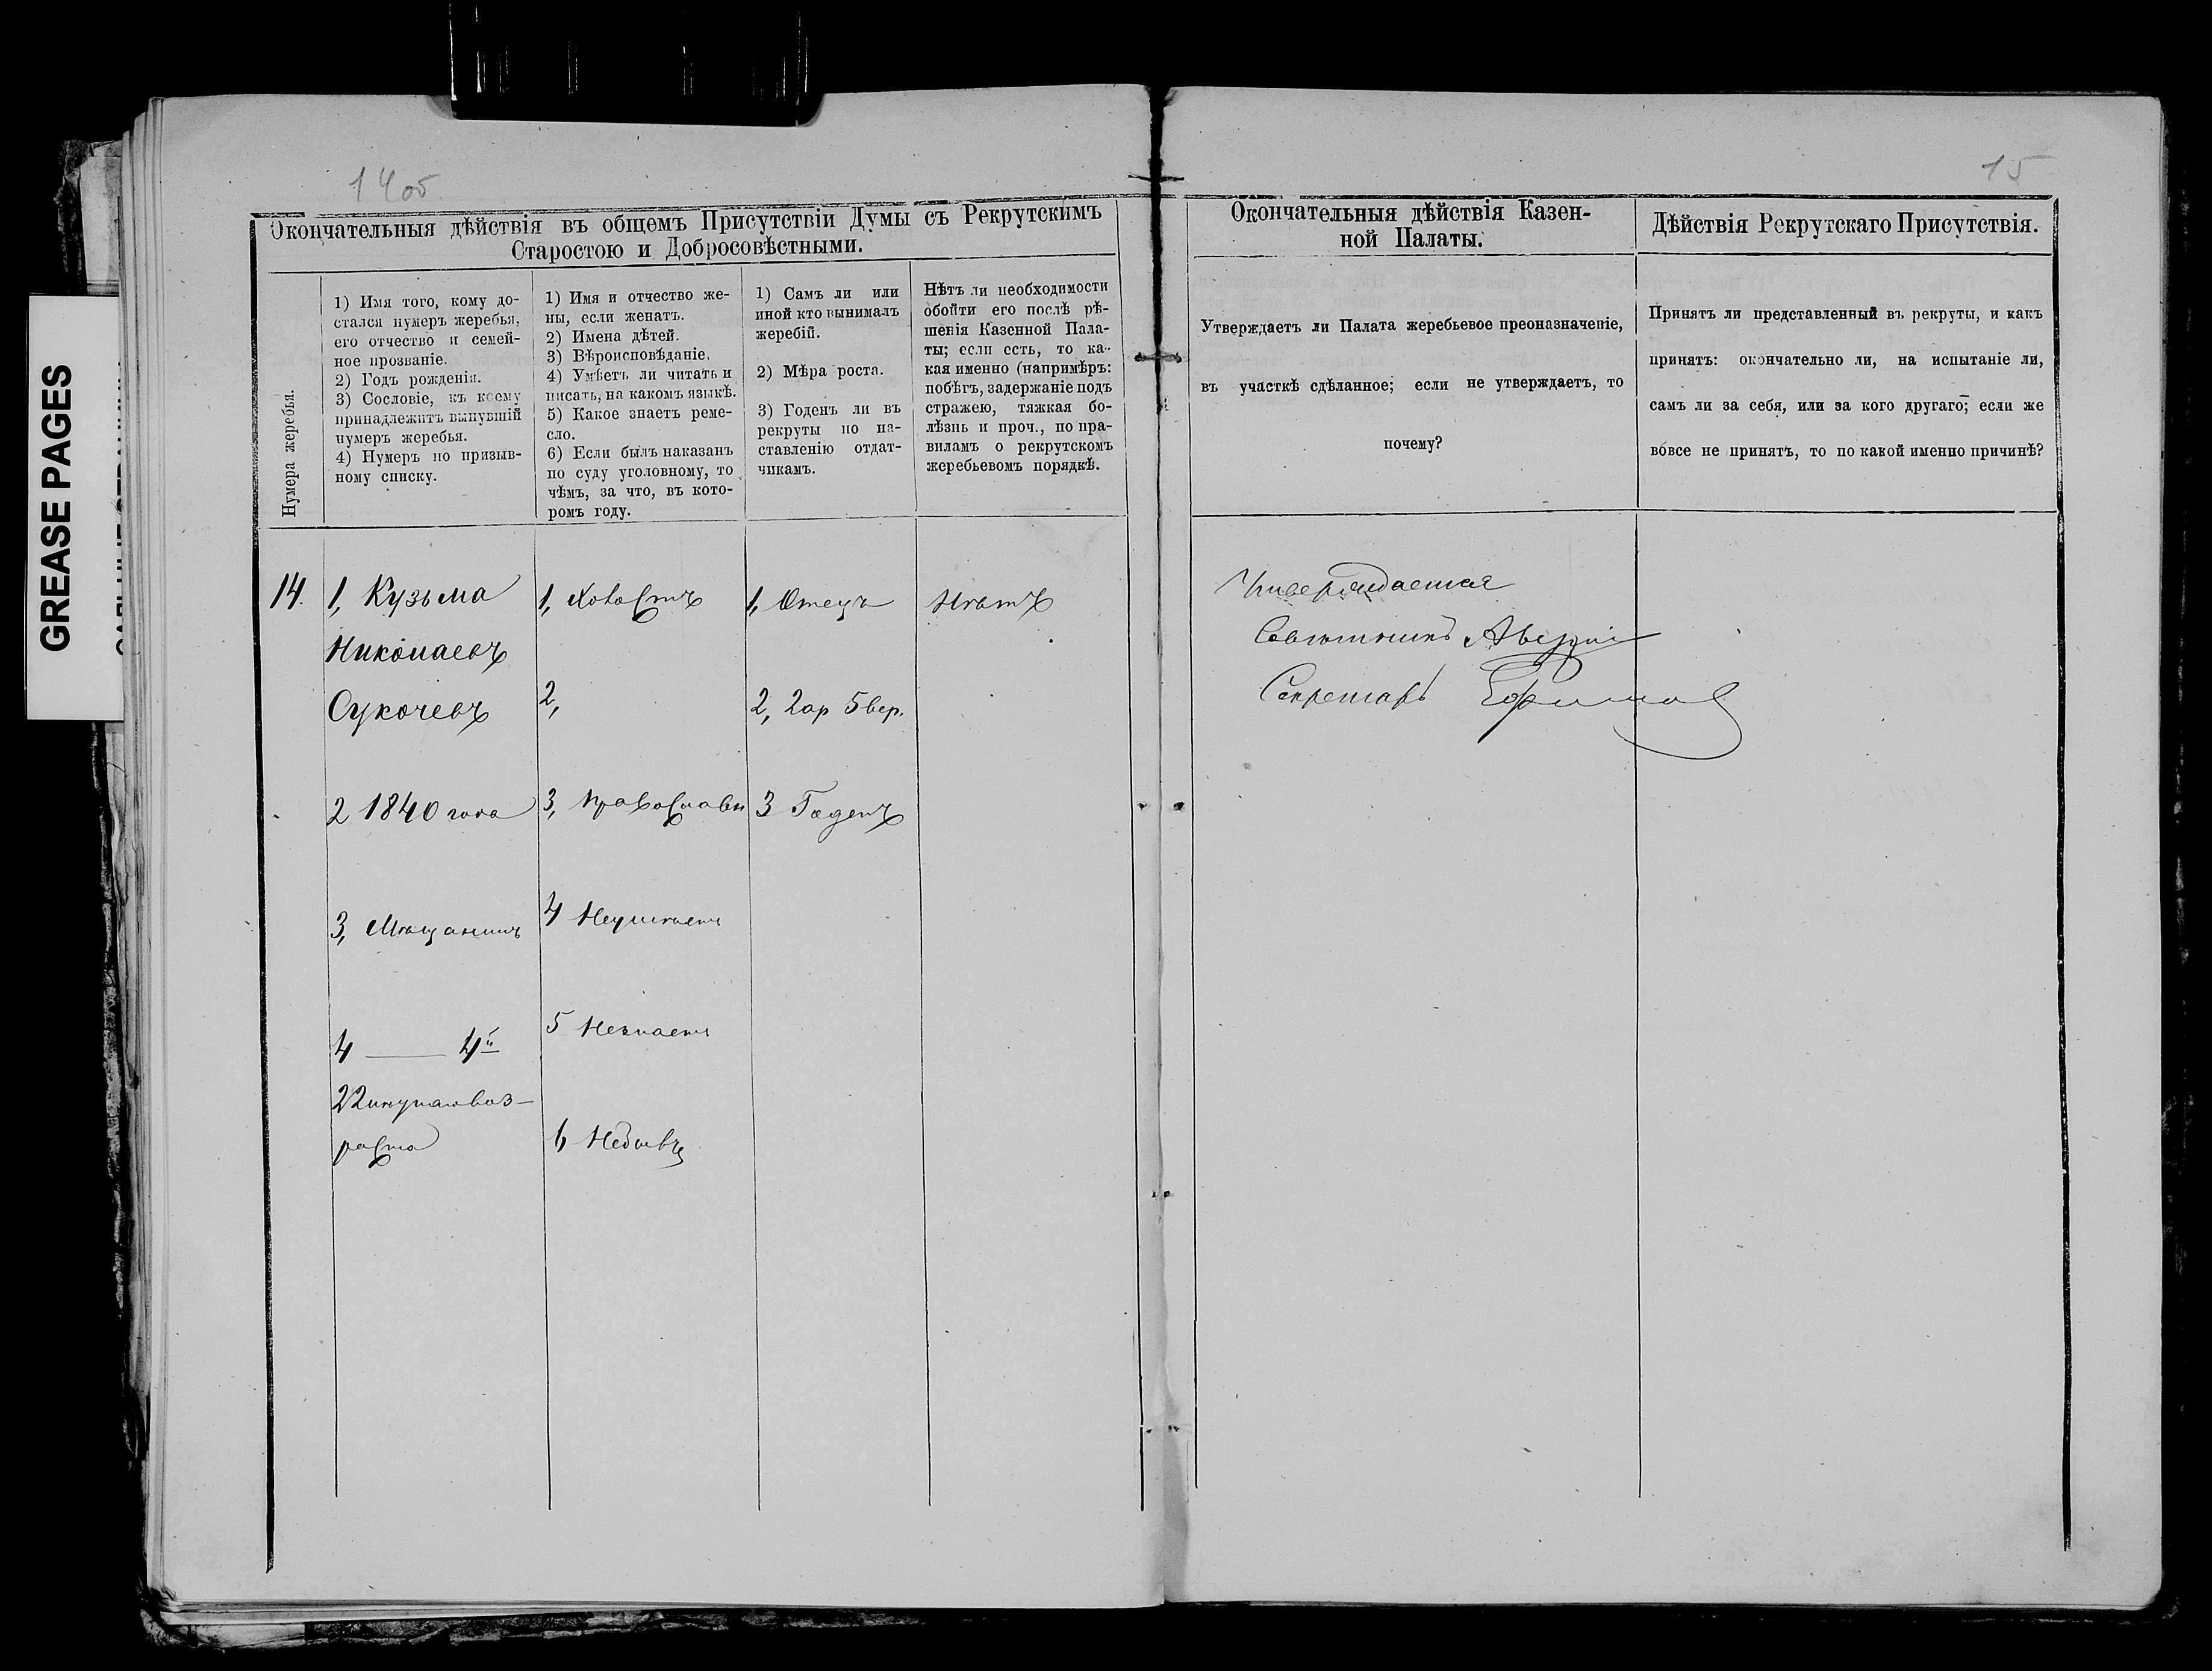 GREASE PAGES
14 об
15
Окончательныя дѣйствія въ общемъ Присутствіи Думы съ Рекрутскимъ
Старостою и Добросовѣстными.
Нумера жеребья.
1) Имя того, кому до-
стался нумеръ жеребья,
его отчество и семей-
ное прозваніе.
2) Годъ рожденія.
3) Сословіе, къ коему
принадлежитъ вынувшій
нумеръ жеребья.
4) Нумеръ по призыв-
ному списку.
1) Имя и отчество же-
ны, если женатъ.
2) Имена дѣтей.
3) Вѣроисповѣданіе.
4) Умѣетъ ли читать и
писать, на какомъ языкѣ.
5) Какое знаетъ реме-
сло.
6) Если былъ наказанъ
по суду уголовному, то
чѣмъ, за что, въ кото-
ромъ году.
1) Самъ ли или
иной кто вынималъ
жеребій.
2) Мѣра роста.
3) Годенъ ли въ
рекруты по на-
ставленію отдат-
чикамъ.
Нѣтъ ли необходимости
обойти его послѣ рѣ-
шенія Казенной Пала-
ты; если есть, то ка-
кая именно (напримѣръ:
побѣгъ, задержаніе подъ
стражею, тяжкая бо-
лѣзнь и проч., по пра-
виламъ о рекрутскомъ
жеребьевомъ порядкѣ.
Окончательныя дѣйствія Казен-
ной Палаты.
Утверждаетъ ли Палата жеребьевое преоназначеніе,
въ участкѣ сдѣланное; если не утверждаетъ, то
почему?
Дѣйствія Рекрутскаго Присутствія.
Принятъ ли представленный въ рекруты, и какъ
принятъ: окончательно ли, на испытаніе ли,
самъ ли за себя, или за кого другаго; если же
вовсе не принятъ, то по какой именно причинѣ?
14.
1, Кузьма
Николаевъ
Сукочевъ
2 1840 года
3, Мѣщанинъ
4 — 4й
22 воз-
раста
1, Холостъ
2,
3, Православн
4 Неумѣетъ
5 Незнаетъ
6 Небылъ
1, Отецъ
2, 2 ар 5 вер.
3 Годенъ
Нѣтъ
Утверждается
Совѣтникъ
Секретарь Ефимов